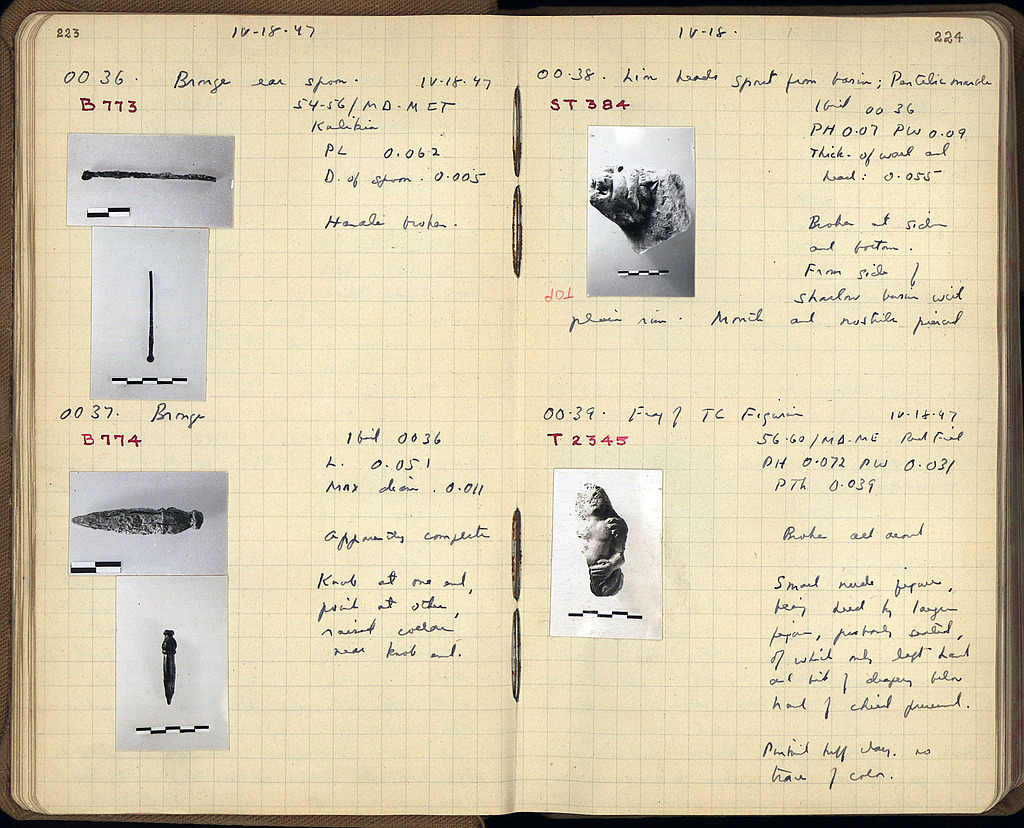 223
IV-18-47
OO 36. Bronze ear spoon. IV-18-47
B 773
54-56/MΔ-MET
PL 0.062
D. of spoon. 0.005
Handle broken.
OO 37. Bronze
B 774
Ibid OO36
L. 0.051
Max diam. 0.011
Apparently complete
Knob at one end,
point at other,
raised collar
near knob end.
IV-18.
224
OO-38. Lion head spout from basin; Pentelic marble
ST 384
Ibid OO 36
PH 0.07 PW 0.09
Thick. of wall at
head: 0.055
Broken at sides
and bottom.
From side of
shallow basin with
TOP
plain rim. Mouth and nostrils pierced
OO-39. Frag of TC Figurine IV-18-47
T 2345
56-60/MΔ-ME
PH 0.072 PW 0.031
PTh 0.039
Broken all around
Small nude figure,
being held by larger
figure, probably seated,
of which only left hand
and bit of drapery below
hand of child preserved.
buff clay. no
trace of color.